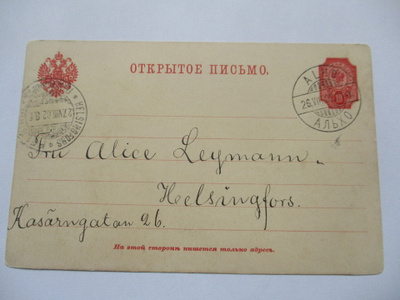 ОТКРЫТОЕ ПИСЬМО.
АЛЬХО
Alice Leymann.
Helsingfors.
Kasärngatan 26.
На этой сторонѣ пишется только адресъ.